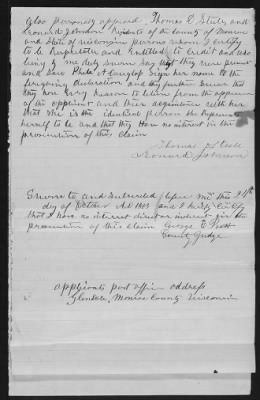 Also personally appeared Thomas O Steele and
Leonard Johnson Residents of the County of Monroe
and State of Wisconsin persons whom I certify
to be Respectable and Entitled to Credit and who
being by me duly sworn say that they were present
and saw Phebe A Sign her name to the
foregoing declaration and they further swear that
they have Every Reason to believe from the appearance
of the applicant and their acquaintance with her
that she is the identical person she Represents
herself to be and that they Have no interest in the
prosecution of this Claim
Thomas O Steele
Leonard Johnson
Sworn to and Subscribed before me this 24th
day of October A.D. and I hereby Certify
that I have no interest direct or indirect in the
prosecution of this claim George E
County Judge
applicants post office address
Glendale, Monroe County Wisconsin